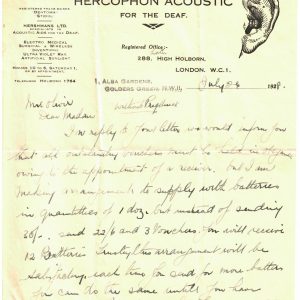 HERCOPHON ACOUSTIC
FOR THE DEAF.
REGISTERED TRADE MARKS
DENTORIT
STIDII.
HERSHMAN'S LTD.
SPECIALISTS IN
ACOUSTIC AIDS FOR THE DEAF.
ELECTRO MEDICAL
SURGICAL & WIRELESS
INVENTIONS
ULTRA VIOLET RAY
ARTIFICIAL SUNLIGHT
HOURS 10 TO 6, SATURDAY 1,
TELEPHONE HOLBORN 1764
Registered Office:
288, HIGH HOLBORN,
LONDON. W.C.1.
1, ALBA GARDENS,
GOLDERS GREEN N.W.11.
July 24 192
Mrs Oliver
Dear Madam
In reply to your letter we would inform you
that all outstanding vouchers must be held in
owing to the appointment of a receiver, but I am
making arrangements to supply with batteries
in quantities of 1 doz. but instead of sending
30/- send 22/6 and 3 Vouchers. You will receive
12 Batteries I trust this arrangement will be
satisfactory, each time you send for more batteries
You can do the same until you have